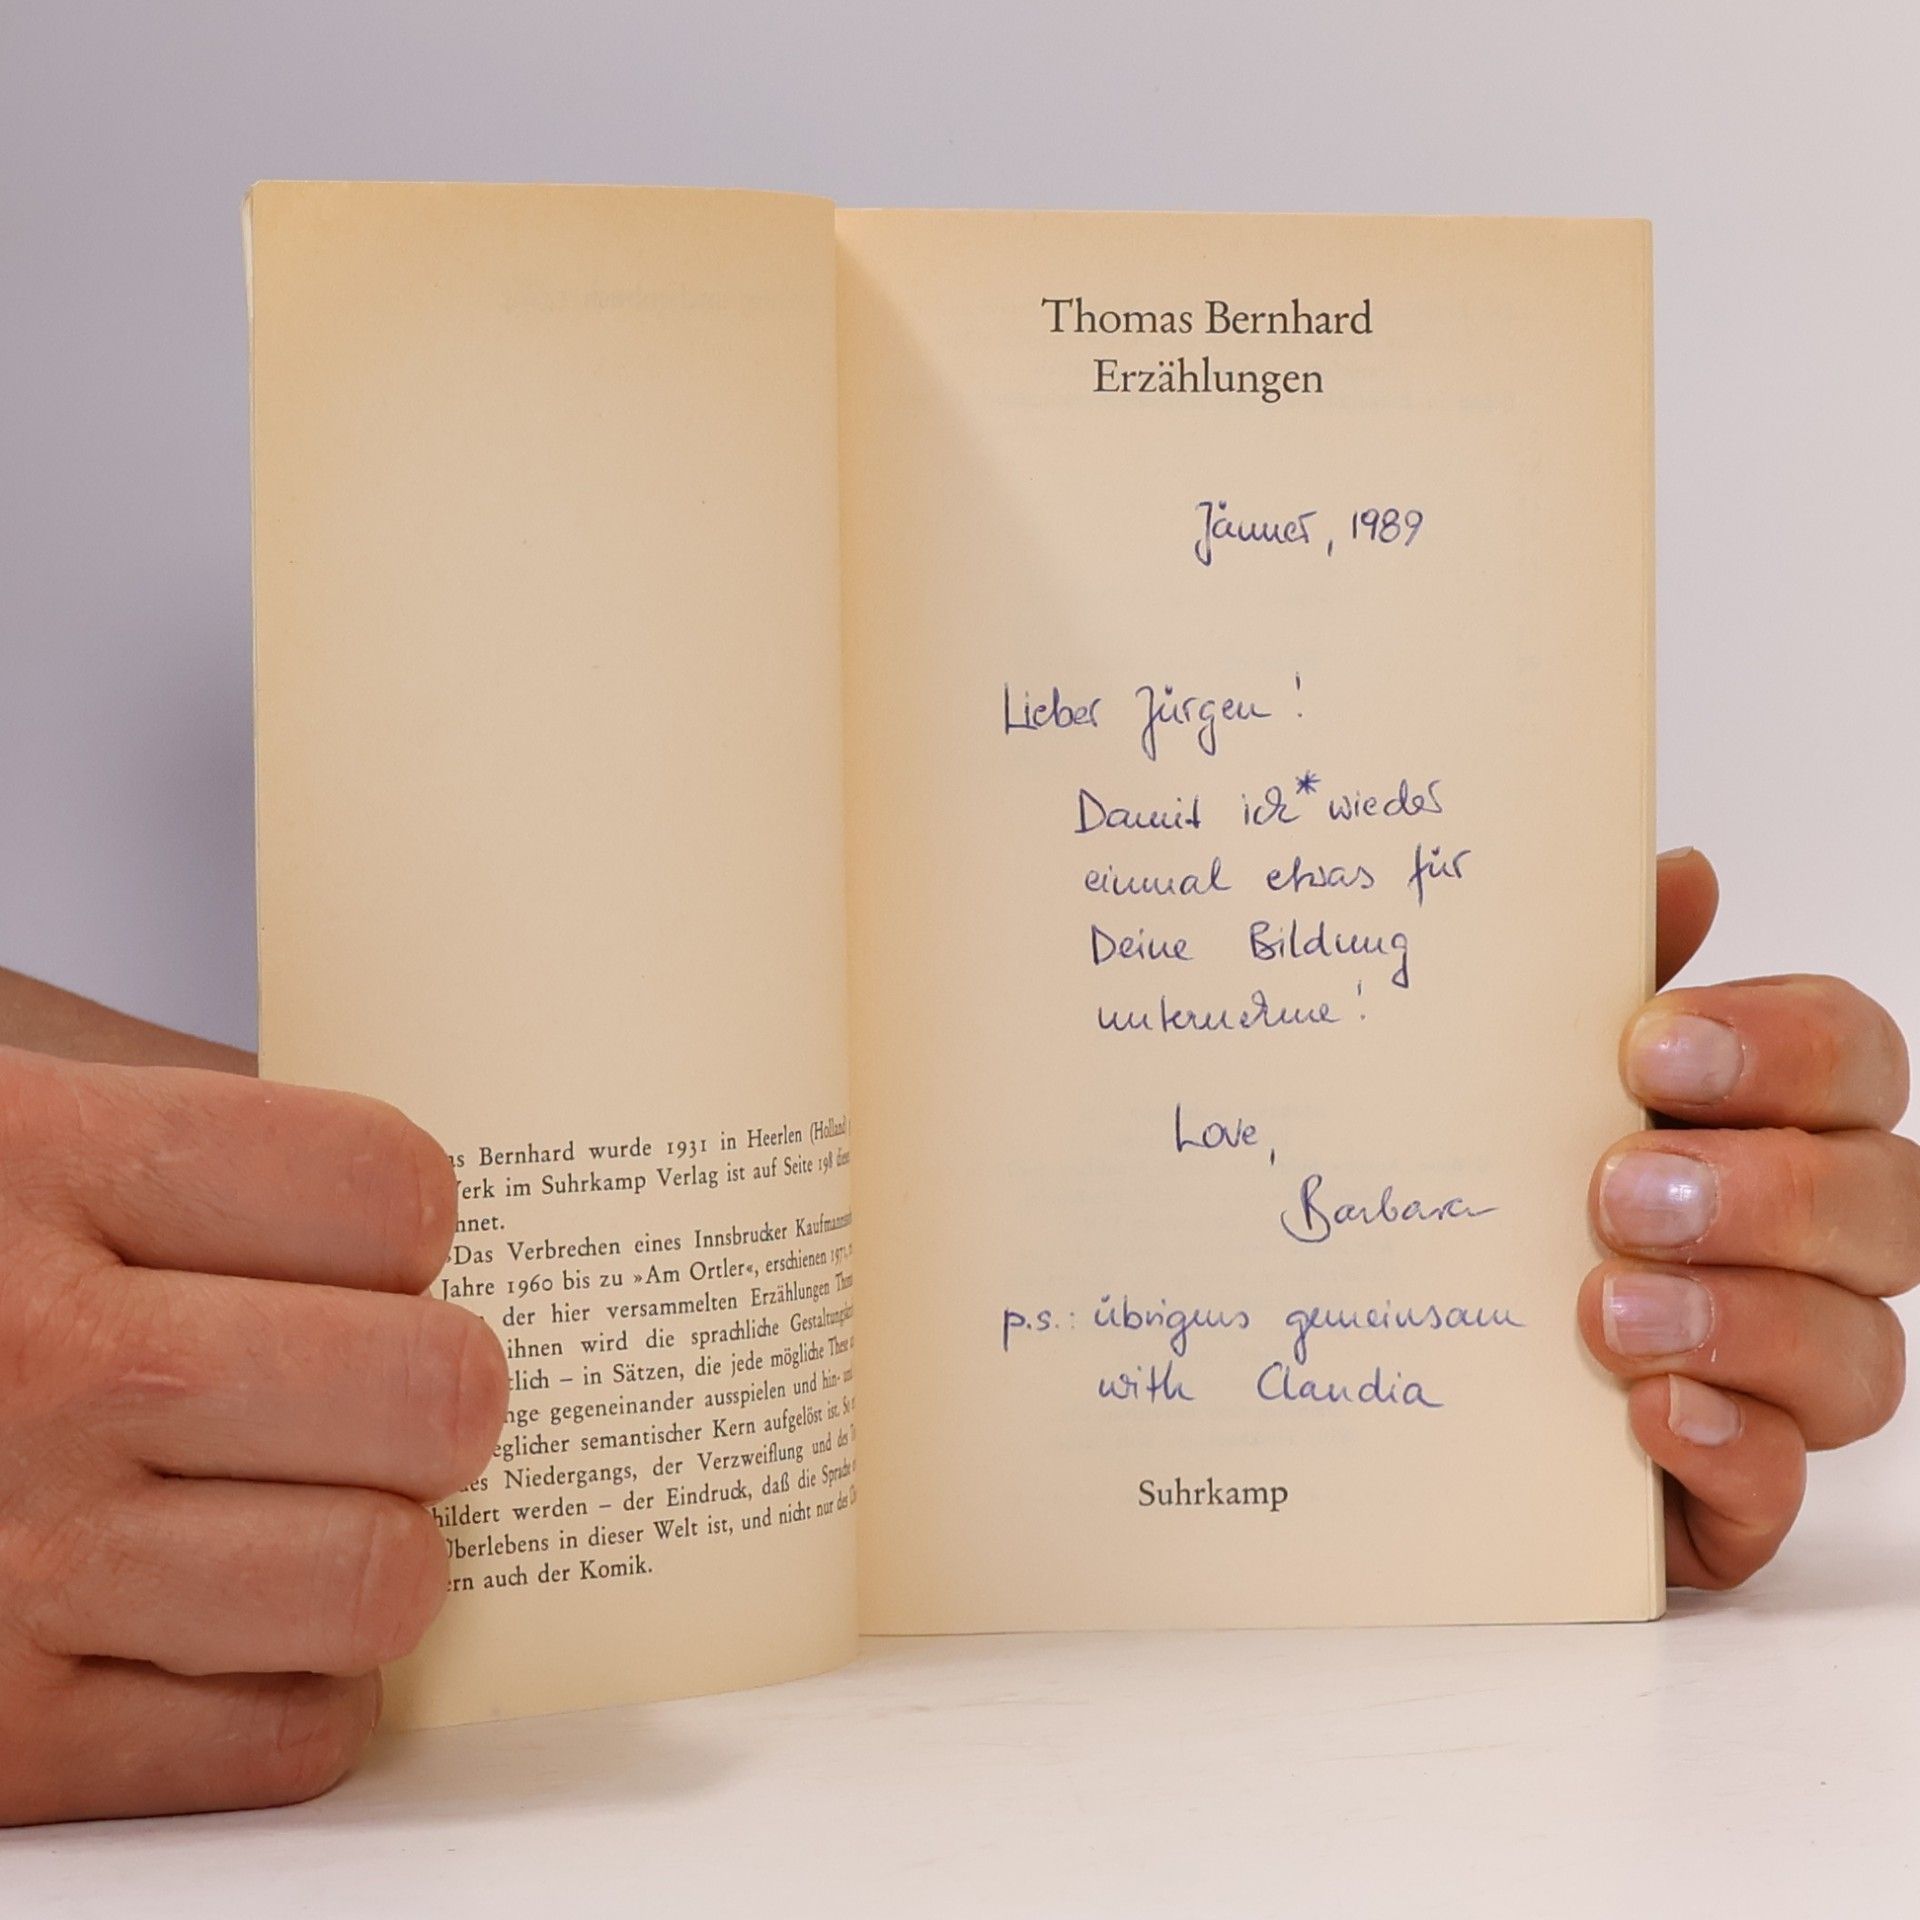 as Bernhard wurde 1931 in Heerlen (Holland)
Werk im Suhrkamp Verlag ist auf Seite 198 dieses
hnet.
»Das Verbrechen eines Innsbrucker Kaufmannssohns
Jahre 1960 bis zu »Am Ortler«, erschienen 1971,
der hier versammelten Erzählungen Thomas
ihnen wird die sprachliche
tlich – in Sätzen, die jede mögliche These
nge gegeneinander ausspielen und hin- und
eglicher semantischer Kern aufgelöst ist. So
des Niedergangs, der Verzweiflung und des
hildert werden – der Eindruck, daß die Sprache
Überlebens in dieser Welt ist, und nicht nur des
ern auch der Komik.
Thomas Bernhard
Erzählungen
Jänner, 1989
Lieber Jürgen !
Damit ich* wieder
einmal etwas für
Deine Bildung
unternehme !
Love,
Barbara
p.s.: übrigens gemeinsam
with Claudia
Suhrkamp